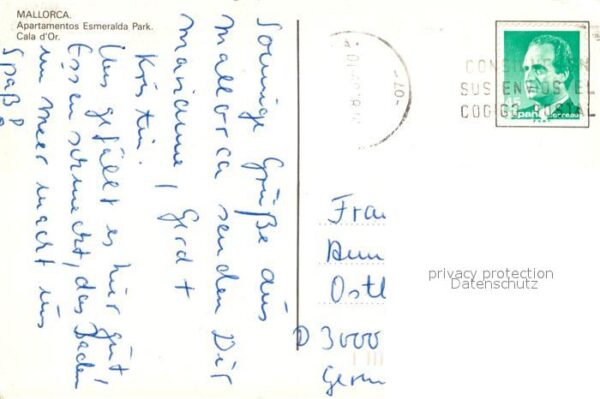 MALLORCA.
Apartamentos Esmeralda Park.
Cala d'Or.
Sonnige Grüße aus
Mallorca senden Dir
Marianne, Gerd +
Kristin.
Uns gefällt es hier gut
Essen schmeckt, das Baden
im Meer macht uns
Spaß!
CONSI
SUS ENVIOS EL
CODIGO POSTAL
España correos
-07-
Frau
Ostl
D 3000
Germ
privacy protection
Datenschutz